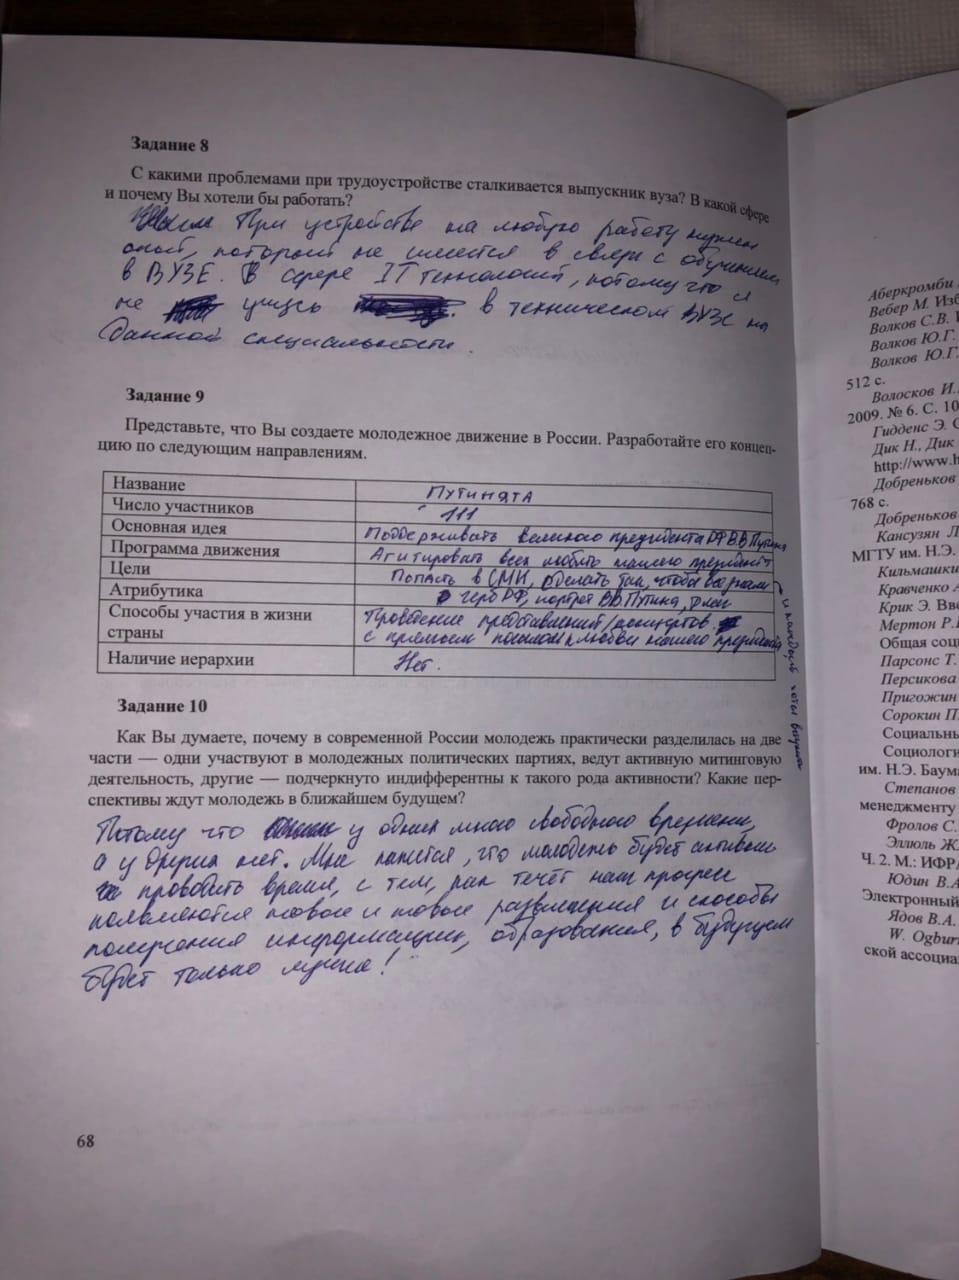 Задание 8
С какими проблемами при трудоустройстве сталкивается выпускник вуза? В какой сфере
и почему Вы хотели бы работать?
При устройстве на любую работу нужен
опыт, который не имеется в связи с обучением
в ВУЗЕ. В сфере IT технологий, потому что я
не учусь в техническом ВУЗе на
данной специальности.
Задание 9
Представьте, что Вы создаете молодежное движение в России. Разработайте его концеп-
цию по следующим направлениям.
Название ПУТИНЯТА
Число участников 111
Основная идея Поддерживать великого президента РФ В.В Путина
Программа движения Агитировать всех любить нашего президента
Цели Попасть в СМИ, сделать так, чтобы все знали
Атрибутика герб РФ, портрет В.В Путина, флаг
Способы участия в жизни Проведение представлений/концертов
страны с прямым посылом к любви нашего президента
Наличие иерархии Нет.
и каждый хотел
Задание 10
Как Вы думаете, почему в современной России молодежь практически разделилась на две
части — одни участвуют в молодежных политических партиях, ведут активную митинговую
деятельность, другие — подчеркнуто индифферентны к такого рода активности? Какие пер-
спективы ждут молодежь в ближайшем будущем?
Потому что у одних много свободного времени,
а у других нет. Мне кажется, что молодежь будет активнее
проводить время, с тем, как течёт наш прогресс
появляются новые и новые развлечения и способы
получения информации, образования, в будущем
будет только лучше!
68
Аберкромби
Вебер М. Изб
Волков С.В.
Волков Ю.Г.
Волков Ю.Г.
512 с.
Волосков И.
2009. № 6. С. 10
Гидденс Э. С
Дик Н., Дик
http://www.h
Добреньков
768 с.
Добреньков
Кансузян Л
МГТУ им. Н.Э.
Кильмашки
Кравченко А
Крик Э. Вве
Мертон Р.
Общая соц
Парсонс Т.
Персикова
Пригожин
Сорокин П
Социальны
Социологи
им. Н.Э. Баума
Степанов
менеджменту
Фролов С.
Эллюль Ж.
Ч. 2. М.: ИФРА
Юдин В.А
Электронный
Ядов В.А.
W. Ogbur
ской ассоциа